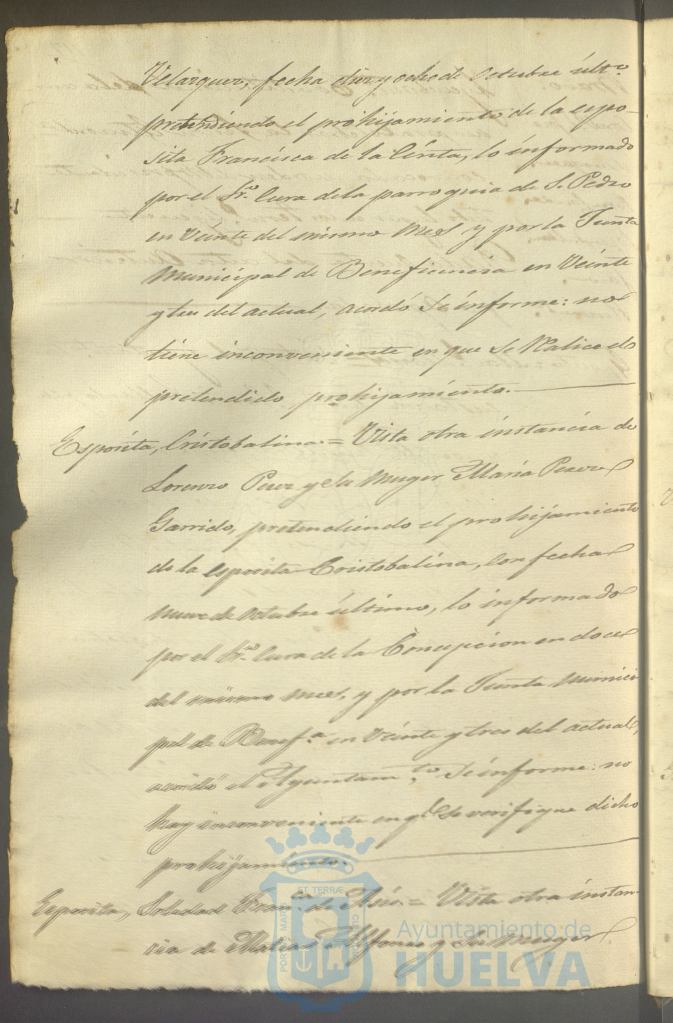 Velazquez, fecha diez y ocho de Octubre últº
pretendiendo el prohijamiento de la espo-
sita Francisca de la Cinta, lo informado
por el Sr. Cura de la parroquia de S. Pedro
en Veinte del mismo mes, y por la Junta
Municipal de Beneficencia en Veinte
y tres del actual, acordó Se informe: no
tiene inconveniente en que Se Realice el
pretendido prohijamiento.
Esposita, Cristobalina = Vista otra instancia de
Lorenzo Perez y Su Muger Maria
Garrido, pretendiendo el prohijamiento
de la esposita Cristobalina, Con fecha
nueve de Octubre último, lo informado
por el Sr. Cura de la Concepcion en doce
del mismo mes, y por la Junta Munici
pal de Benefª en Veinte y tres del actual,
acordó el Ayuntamto Se informe: no
hay inconveniente en q.e Se verifique dicho
prohijamiento.
Esposita, Soledad de Asis = Vista otra instan-
cia de Matias Alfonso y Su Muger
Ayuntamiento de
HUELVA